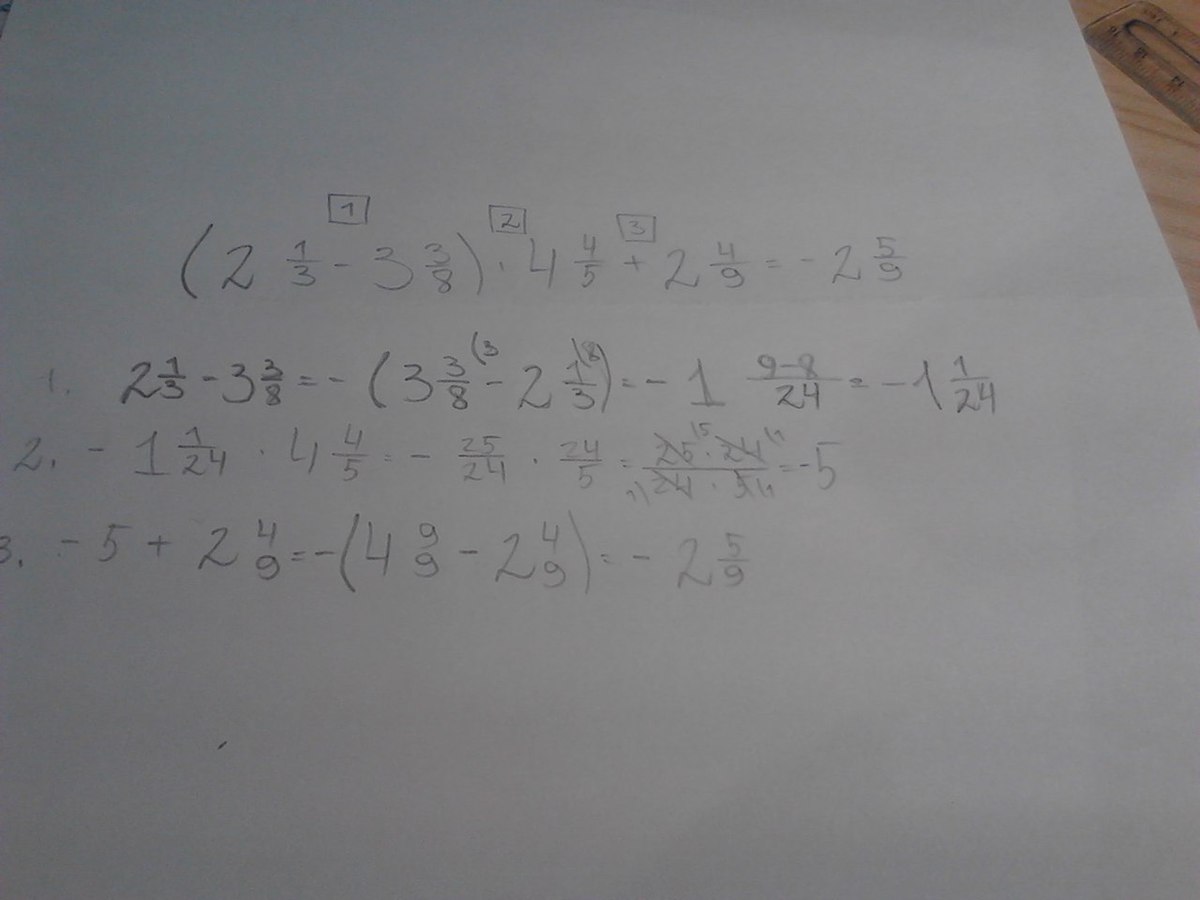 1 2 3
(2 1/3 - 3 3/8) · 4 4/5 + 2 4/9 = - 2 5/9
1. 2 1/3 - 3 3/8 = - (3 3/8 (3 - 2 1/3 (8) = - 1 9-8/24 = - 1 1/24
2. - 1 1/24 · 4 4/5 = - 25/24 · 24/5 = 25 (5 · 24 (1 / 1) 24 · 5 (1 = -5
3. - 5 + 2 4/9 = - (4 9/9 - 2 4/9) = - 2 5/9